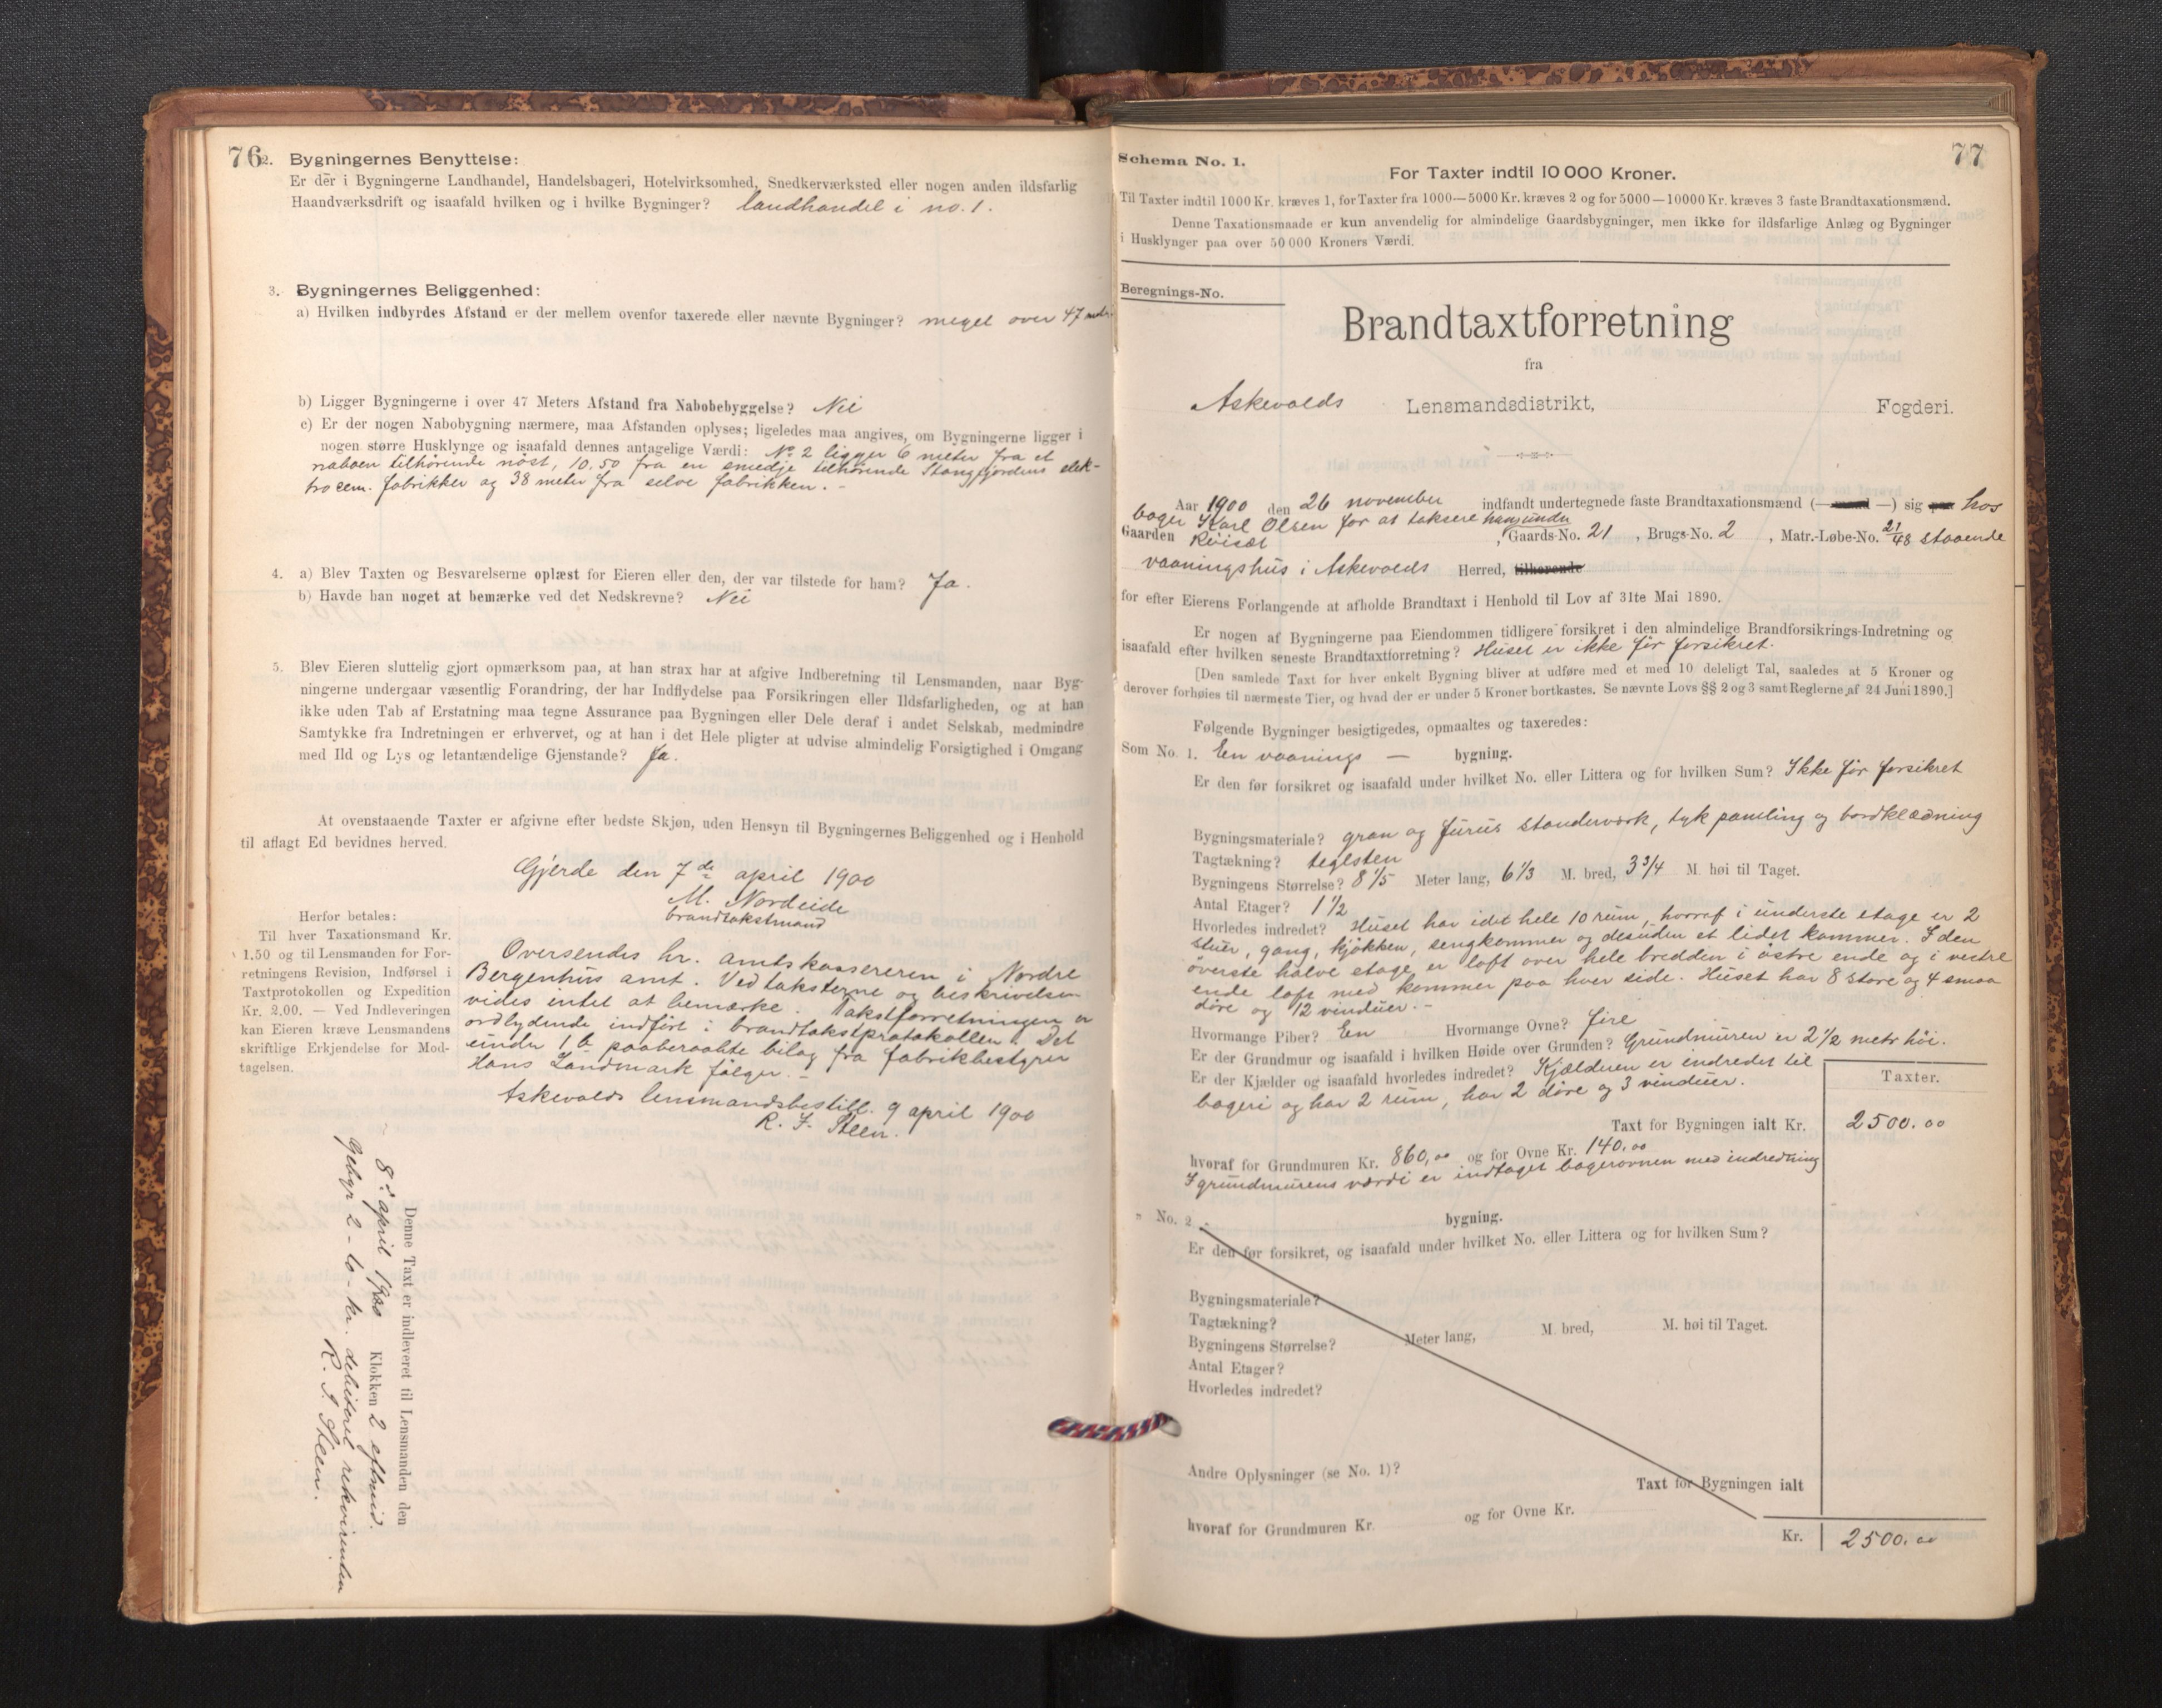 76
2. Bygningernes Benyttelse:
Er der i Bygningerne Landhandel, Handelsbageri, Hotelvirksomhed, Snedkerværksted eller nogen anden ildsfarlig
Haandværksdrift og isaafald hvilken og i hvilke Bygninger? landhandel i no. 1.
3. Bygningernes Beliggenhed:
a) Hvilken indbyrdes Afstand er der mellem ovenfor taxerede eller nævnte Bygninger? meget over 47 metr.
b) Ligger Bygningerne i over 47 Meters Afstand fra Nabobebyggelse? Nei
c) Er der nogen Nabobygning nærmere, maa Afstanden oplyses; ligeledes maa angives, om Bygningerne ligger i
nogen større Husklynge og isaafald dennes antagelige Værdi: No 2 ligger 6 meter fra et
naboen tilhørende nøst, 10,50 fra en smedje tilhørende Stangfjordens elek-
trocem. fabrikker og 38 meter fra selve fabrikken. -
4. a) Blev Taxten og Besvarelserne oplæst for Eieren eller den, der var tilstede for ham? Ja.
b) Havde han noget at bemærke ved det Nedskrevne? Nei
5. Blev Eieren sluttelig gjort opmærksom paa, at han strax har at afgive Indberetning til Lensmanden, naar Byg-
ningerne undergaar væsentlig Forandring, der har Indflydelse paa Forsikringen eller Ildsfarligheden, og at han
ikke uden Tab af Erstatning maa tegne Assurance paa Bygningen eller Dele deraf i andet Selskab, medmindre
Samtykke fra Indretningen er erhvervet, og at han i det Hele pligter at udvise almindelig Forsigtighed i Omgang
med Ild og Lys og letantændelige Gjenstande? Ja.
At ovenstaaende Taxter er afgivne efter bedste Skjøn, uden Hensyn til Bygningernes Beliggenhed og i Henhold
til aflagt Ed bevidnes herved.
Gjerde den 7de april 1900
M. Nordeide
brandtakstmand
Herfor betales:
Til hver Taxationsmand Kr.
1.50 og til Lensmanden for For-
retningens Revision, Indførsel i
Taxtprotokollen og Expedition
Kr. 2.00. — Ved Indleveringen
kan Eieren kræve Lensmandens
skriftlige Erkjendelse for Mod-
tagelsen.
Oversendes hr. amtskassereren i Nordre
Bergenhus amt. Ved taksterne og beskrivelsen
vides intet at bemærke. Takstforretningen er
ordlydende indført i brandtakstprotokollen. Det
under 1 b paaberaabte bilag fra fabrikbestyrer
Hans Landmark følger. -
Askevolds lensmandsbestill. 9 april 1900
R. J. Steen.
Denne Taxt er indleveret til Lensmanden den
8. april 1900 Klokken 2 eftmid.
Gebyr 2 - to - kr. debiteret rekvirenten
R. J. Steen.
77
Schema No. 1.
For Taxter indtil 10 000 Kroner.
Til Taxter indtil 1000 Kr. kræves 1, for Taxter fra 1000—5000 Kr. kræves 2 og for 5000—10000 Kr. kræves 3 faste Brandtaxationsmænd.
Denne Taxationsmaade er kun anvendelig for almindelige Gaardsbygninger, men ikke for ildsfarlige Anlæg og Bygninger
i Husklynger paa over 50 000 Kroners Værdi.
Beregnings-No.
Brandtaxtforretning
fra
Askevolds Lensmandsdistrikt, Fogderi.
Aar 1900 den 26 november indfandt undertegnede faste Brandtaxationsmænd (—mand—) sig paa hos
bager Karl Olsen for at taksere hans under
Gaarden Röiset, Gaards-No. 21, Brugs-No. 2, Matr.-Løbe-No. 21/48 staaende
vaaningshus i Askevolds Herred, tilhørende
for efter Eierens Forlangende at afholde Brandtaxt i Henhold til Lov af 31te Mai 1890.
Er nogen af Bygningerne paa Eiendommen tidligere forsikret i den almindelige Brandforsikrings-Indretning og
isaafald efter hvilken seneste Brandtaxtforretning? Huset er ikke før forsikret.
[Den samlede Taxt for hver enkelt Bygning bliver at udføre med et med 10 deleligt Tal, saaledes at 5 Kroner og
derover forhøies til nærmeste Tier, og hvad der er under 5 Kroner bortkastes. Se nævnte Lovs §§ 2 og 3 samt Reglerne af 24 Juni 1890.]
Følgende Bygninger besigtigedes, opmaaltes og taxeredes:
Som No. 1. En vaanings — bygning.
Er den før forsikret og isaafald under hvilket No. eller Littera og for hvilken Sum? Ikke før forsikret
Bygningsmateriale? gran og furus standerværk, tyk panling og bordklædning
Tagtækning? teglsten
Bygningens Størrelse? 8 1/5 Meter lang, 6 1/3 M. bred, 3 3/4 M. høi til Taget.
Antal Etager? 1 1/2
Hvorledes indredet? Huset har idet hele 10 rum, hvoraf i underste etage er 2
stuer, gang, kjøkken, sengkammer og desuden et lidet kammer. I den
øverste halve etage er loft over hele bredden i østre ende og i vestre
ende loft med kammer paa hver side. Huset har 8 store og 4 smaa
døre og 12 vinduer. -
Hvormange Piber? En Hvormange Ovne? fire
Er der Grundmur og isaafald i hvilken Høide over Grunden? Grundmuren er 2 1/2 metr høi.
Er der Kjælder og isaafald hvorledes indredet? Kjælderen er indredet til
bageri og har 2 rum, har 2 døre og 3 vinduer.
Taxter.
Taxt for Bygningen ialt Kr. 2500.00
hvoraf for Grundmuren Kr. 860,00 og for Ovne Kr. 140.00
I grundmurens værdi er indtaget bagerovnen med indredning
" No. 2. - bygning.
Er den før forsikret, og isaafald under hvilket No. eller Littera og for hvilken Sum?
Bygningsmateriale?
Tagtækning?
Bygningens Størrelse? Meter lang, M. bred, M. høi til Taget.
Antal Etager?
Hvorledes indredet?
Andre Oplysninger (se No. 1)?
Taxt for Bygningen ialt
hvoraf for Grundmuren Kr. og for Ovne Kr.
Kr. 2500.00